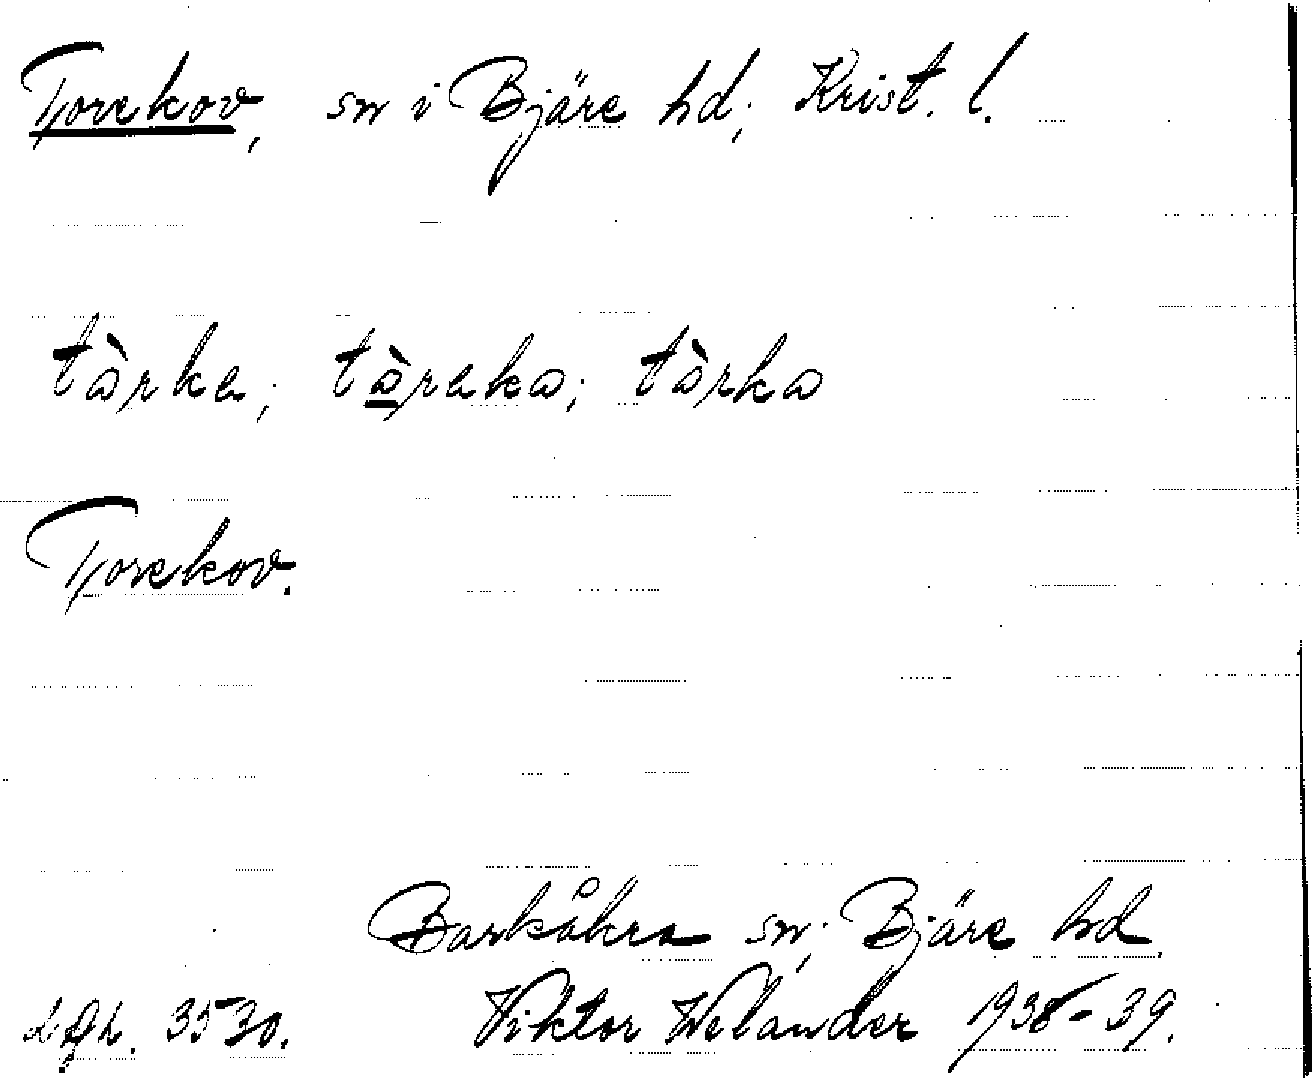 Torekov, sn i Bjäre hd; Krist. l.
tàrka; tàraka; tàrka
Torekov.
Barkåkra sn; Bjäre hd.
3530. Viktor Welander 1938-39.